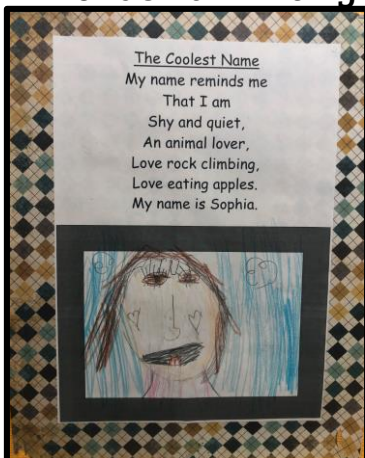 The Coolest Name
My name reminds me
That I am
Shy and quiet,
An animal lover,
Love rock climbing,
Love eating apples.
My name is Sophia.